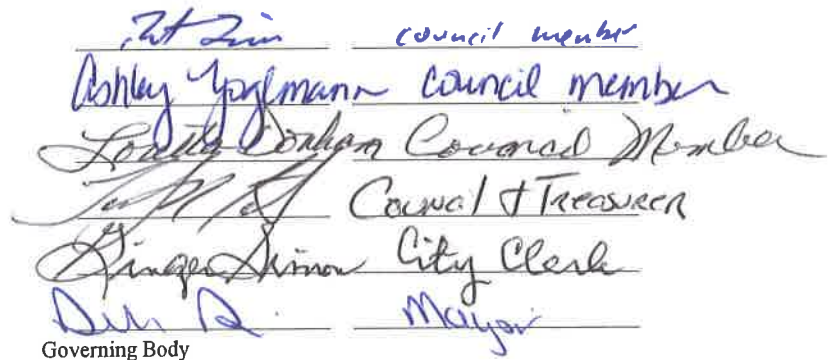 council member
Ashley Yoglmann council member
Donham Council Member
Council & Treasurer
Ginger Simon City Clerk
Mayor
Governing Body